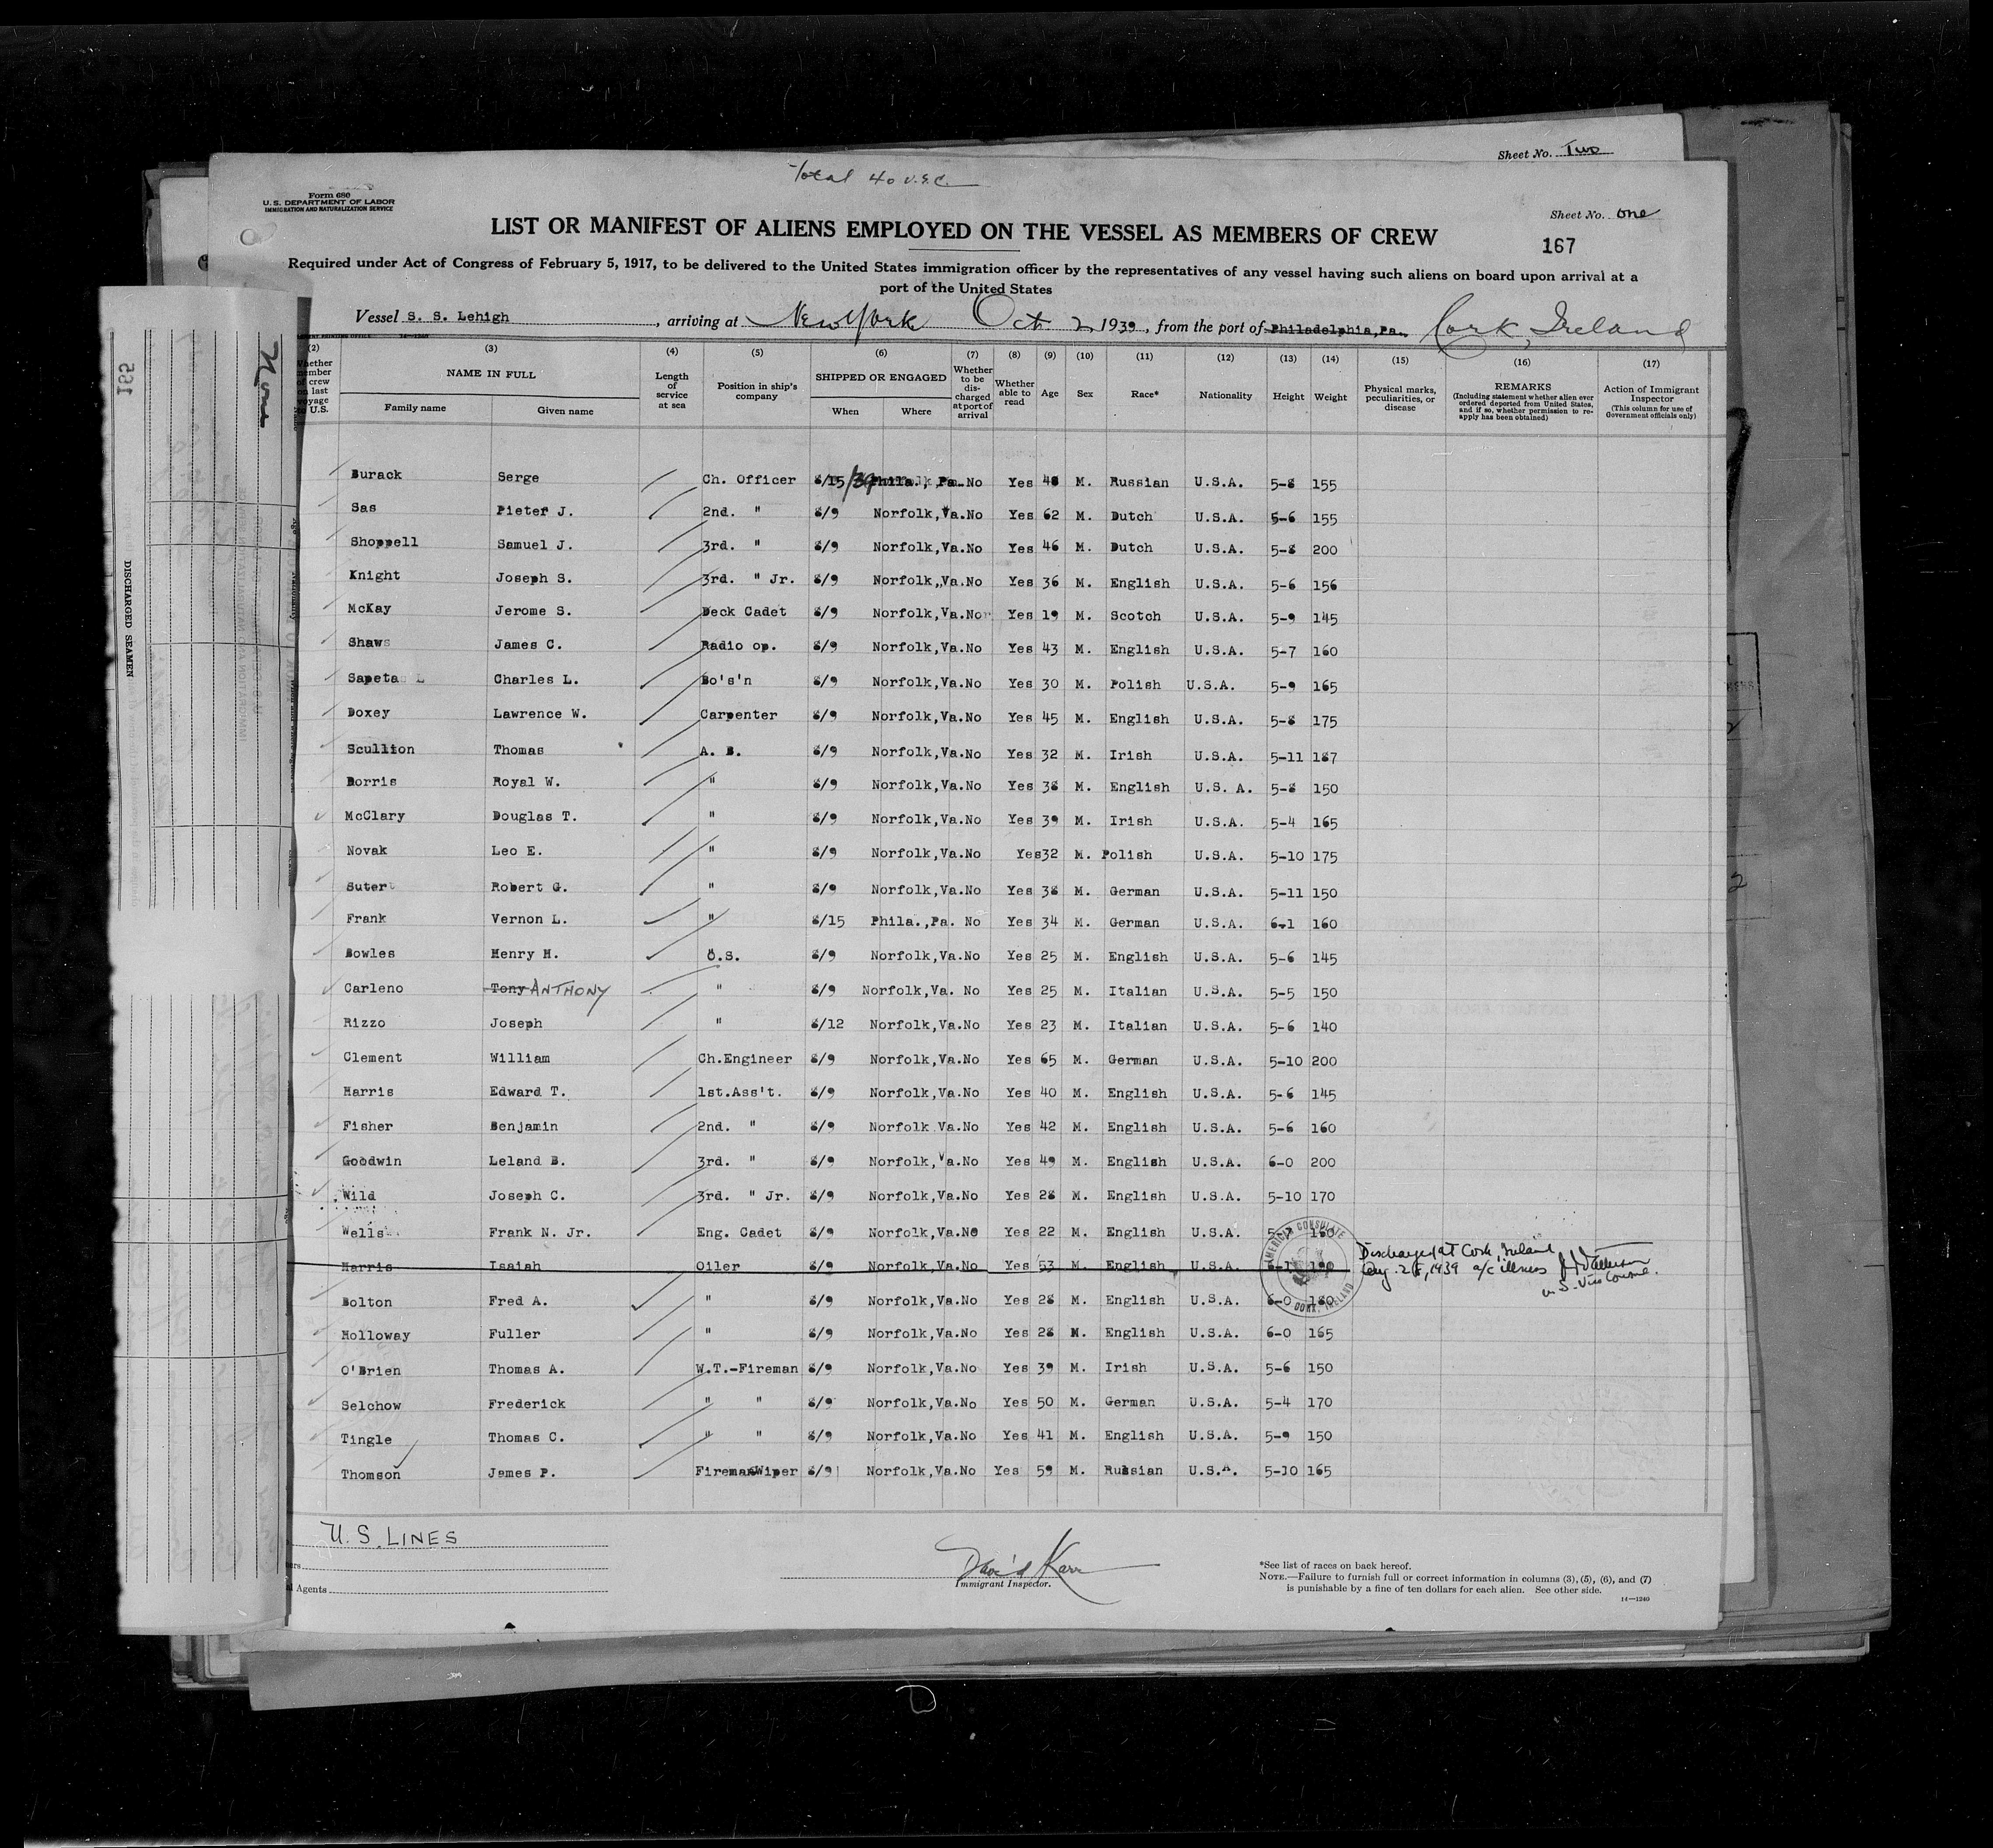 Sheet No. Two
Total 40 U.S.C.
Form 680
U. S. DEPARTMENT OF LABOR
IMMIGRATION AND NATURALIZATION SERVICE
Sheet No. One
LIST OR MANIFEST OF ALIENS EMPLOYED ON THE VESSEL AS MEMBERS OF CREW
167
Required under Act of Congress of February 5, 1917, to be delivered to the United States immigration officer by the representatives of any vessel having such aliens on board upon arrival at a
port of the United States
Vessel S. S. Lehigh, arriving at New York Oct 2 1939, from the port of Philadelphia, Pa. Cork, Ireland
165
None
DISCHARGED SEAMEN
(2) (3) (4) (5) (6) (7) (8) (9) (10) (11) (12) (13) (14) (15) (16) (17)
Whether member of crew on last voyage to U.S. NAME IN FULL Family name Given name Length of service at sea Position in ship's company SHIPPED OR ENGAGED When Where Whether to be discharged at port of arrival Whether able to read Age Sex Race* Nationality Height Weight Physical marks, peculiarities, or disease REMARKS (Including statement whether alien ever ordered deported from United States, and if so, whether permission to reapply has been obtained) Action of Immigrant Inspector (This column for use of Government officials only)
Burack Serge Ch. Officer 8/15/39 Phila., Pa. No Yes 48 M. Russian U.S.A. 5-8 155
Sas Pieter J. 2nd. " 8/9 Norfolk,Va. No Yes 62 M. Dutch U.S.A. 5-6 155
Shoppell Samuel J. 3rd. " 8/9 Norfolk,Va. No Yes 46 M. Dutch U.S.A. 5-8 200
Knight Joseph S. 3rd. " Jr. 8/9 Norfolk,Va. No Yes 36 M. English U.S.A. 5-6 156
McKay Jerome S. Deck Cadet 8/9 Norfolk,Va. No Yes 19 M. Scotch U.S.A. 5-9 145
Shaw James C. Radio op. 8/9 Norfolk,Va. No Yes 43 M. English U.S.A. 5-7 160
Sapeta Charles L. Bo's'n 8/9 Norfolk,Va. No Yes 30 M. Polish U.S.A. 5-9 165
Doxey Lawrence W. Carpenter 8/9 Norfolk,Va. No Yes 45 M. English U.S.A. 5-8 175
Scullion Thomas A. B. 8/9 Norfolk,Va. No Yes 32 M. Irish U.S.A. 5-11 187
Borris Royal W. " 8/9 Norfolk,Va. No Yes 38 M. English U.S. A. 5-8 150
McClary Douglas T. " 8/9 Norfolk,Va. No Yes 39 M. Irish U.S.A. 5-4 165
Novak Leo E. " 8/9 Norfolk,Va. No Yes 32 M. Polish U.S.A. 5-10 175
Suter Robert G. " 8/9 Norfolk,Va. No Yes 38 M. German U.S.A. 5-11 150
Frank Vernon L. " 8/15 Phila.,Pa. No Yes 34 M. German U.S.A. 6-1 160
Bowles Henry H. O.S. 8/9 Norfolk,Va. No Yes 25 M. English U.S.A. 5-6 145
Carleno Tony ANTHONY " 8/9 Norfolk,Va. No Yes 25 M. Italian U.S.A. 5-5 150
Rizzo Joseph " 8/12 Norfolk,Va. No Yes 23 M. Italian U.S.A. 5-6 140
Clement William Ch.Engineer 8/9 Norfolk,Va. No Yes 65 M. German U.S.A. 5-10 200
Harris Edward T. 1st.Ass't. 8/9 Norfolk,Va. No Yes 40 M. English U.S.A. 5-6 145
Fisher Benjamin 2nd. " 8/9 Norfolk Va. No Yes 42 M. English U.S.A. 5-6 160
Goodwin Leland B. 3rd. " 8/9 Norfolk,Va. No Yes 49 M. English U.S.A. 6-0 200
Wild Joseph C. 3rd. " Jr. 8/9 Norfolk,Va. No Yes 28 M. English U.S.A. 5-10 170
Wells Frank N. Jr. Eng. Cadet 8/9 Norfolk,Va. No Yes 22 M. English U.S.A. 5-7 160
Harris Isaiah Oiler 8/9 Norfolk,Va. No Yes 53 M. English U.S.A. 6-1 190 Discharged at Cork, Ireland
Aug. 28, 1939 a/c illness
U. S. Vice Consul.
AMERICAN CONSULATE CORK, IRELAND
Bolton Fred A. " 8/9 Norfolk,Va. No Yes 28 M. English U.S.A. 6-0 180
Holloway Fuller " 8/9 Norfolk,Va. No Yes 28 M. English U.S.A. 6-0 165
O'Brien Thomas A. W.T.-Fireman 8/9 Norfolk,Va. No Yes 39 M. Irish U.S.A. 5-6 150
Selchow Frederick " " 8/9 Norfolk,Va. No Yes 50 M. German U.S.A. 5-4 170
Tingle Thomas C. " " 8/9 Norfolk,Va. No Yes 41 M. English U.S.A. 5-9 150
Thomson James P. Fireman Wiper 8/9 Norfolk,Va. No Yes 59 M. Russian U.S.A. 5-10 165
U. S. LINES
Agents
David Karr
Immigrant Inspector.
*See list of races on back hereof.
NOTE.—Failure to furnish full or correct information in columns (3), (5), (6), and (7)
is punishable by a fine of ten dollars for each alien. See other side.
14—1240